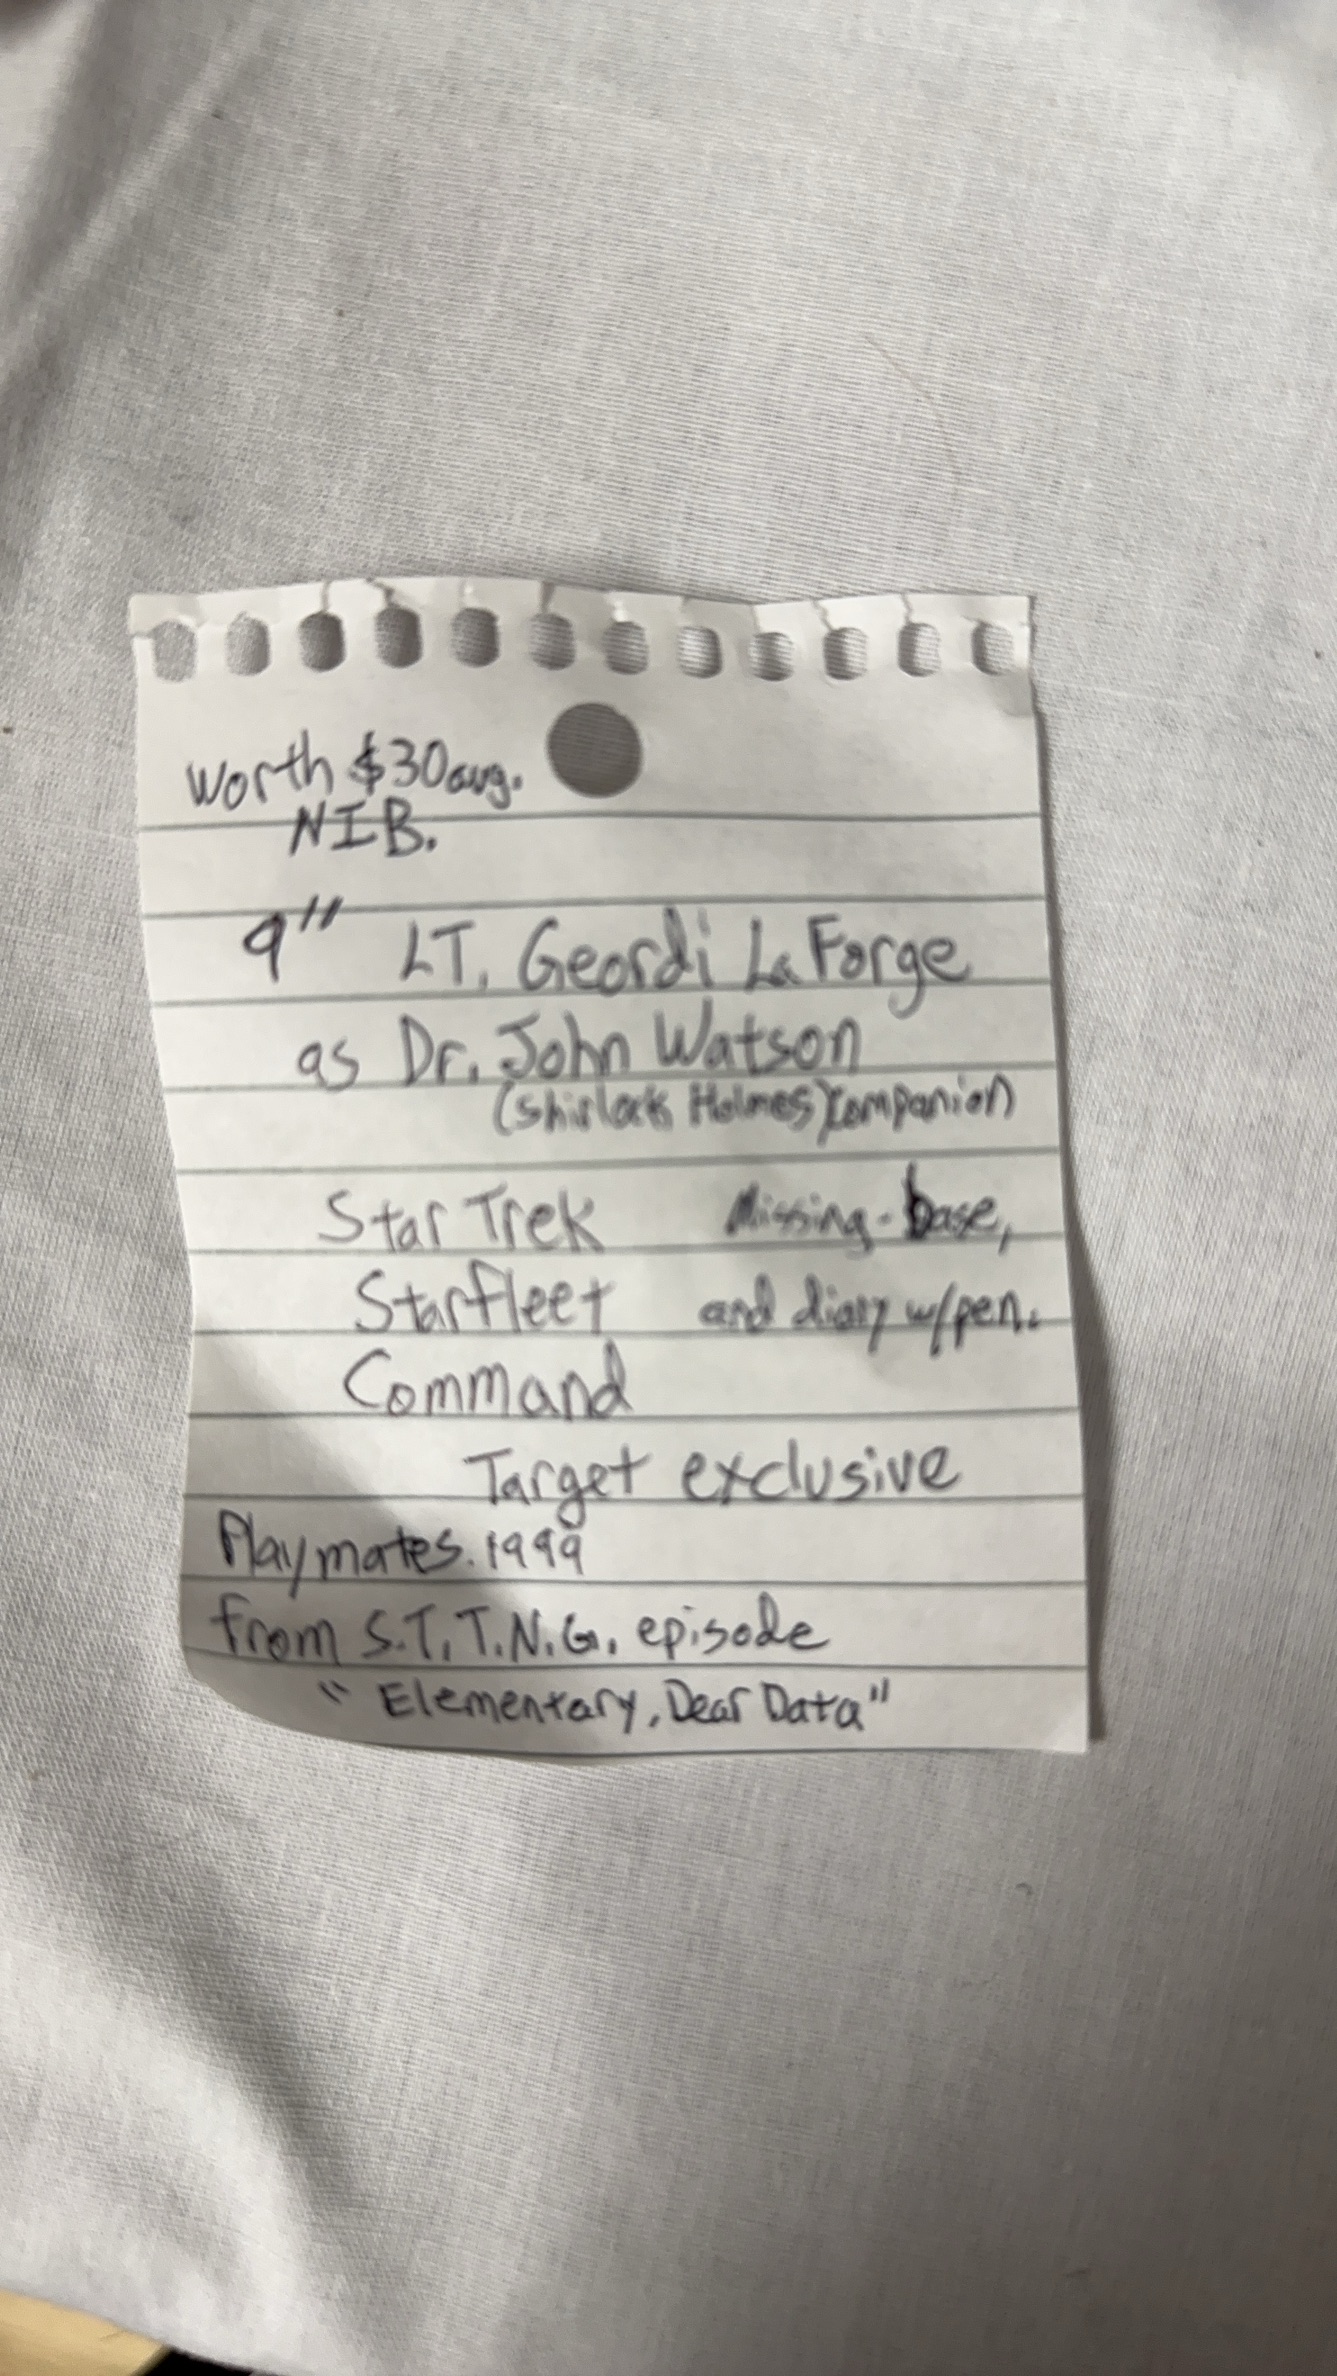 worth $30 avg.
NIB.
9" LT. Geordi La Forge
as Dr. John Watson
(Shirlock Holmes) companion)
Star Trek Missing - base,
Starfleet and diary w/pen.
Command
Target exclusive
Playmates. 1999
from S.T.T.N.G. episode
" Elementary, Dear Data"